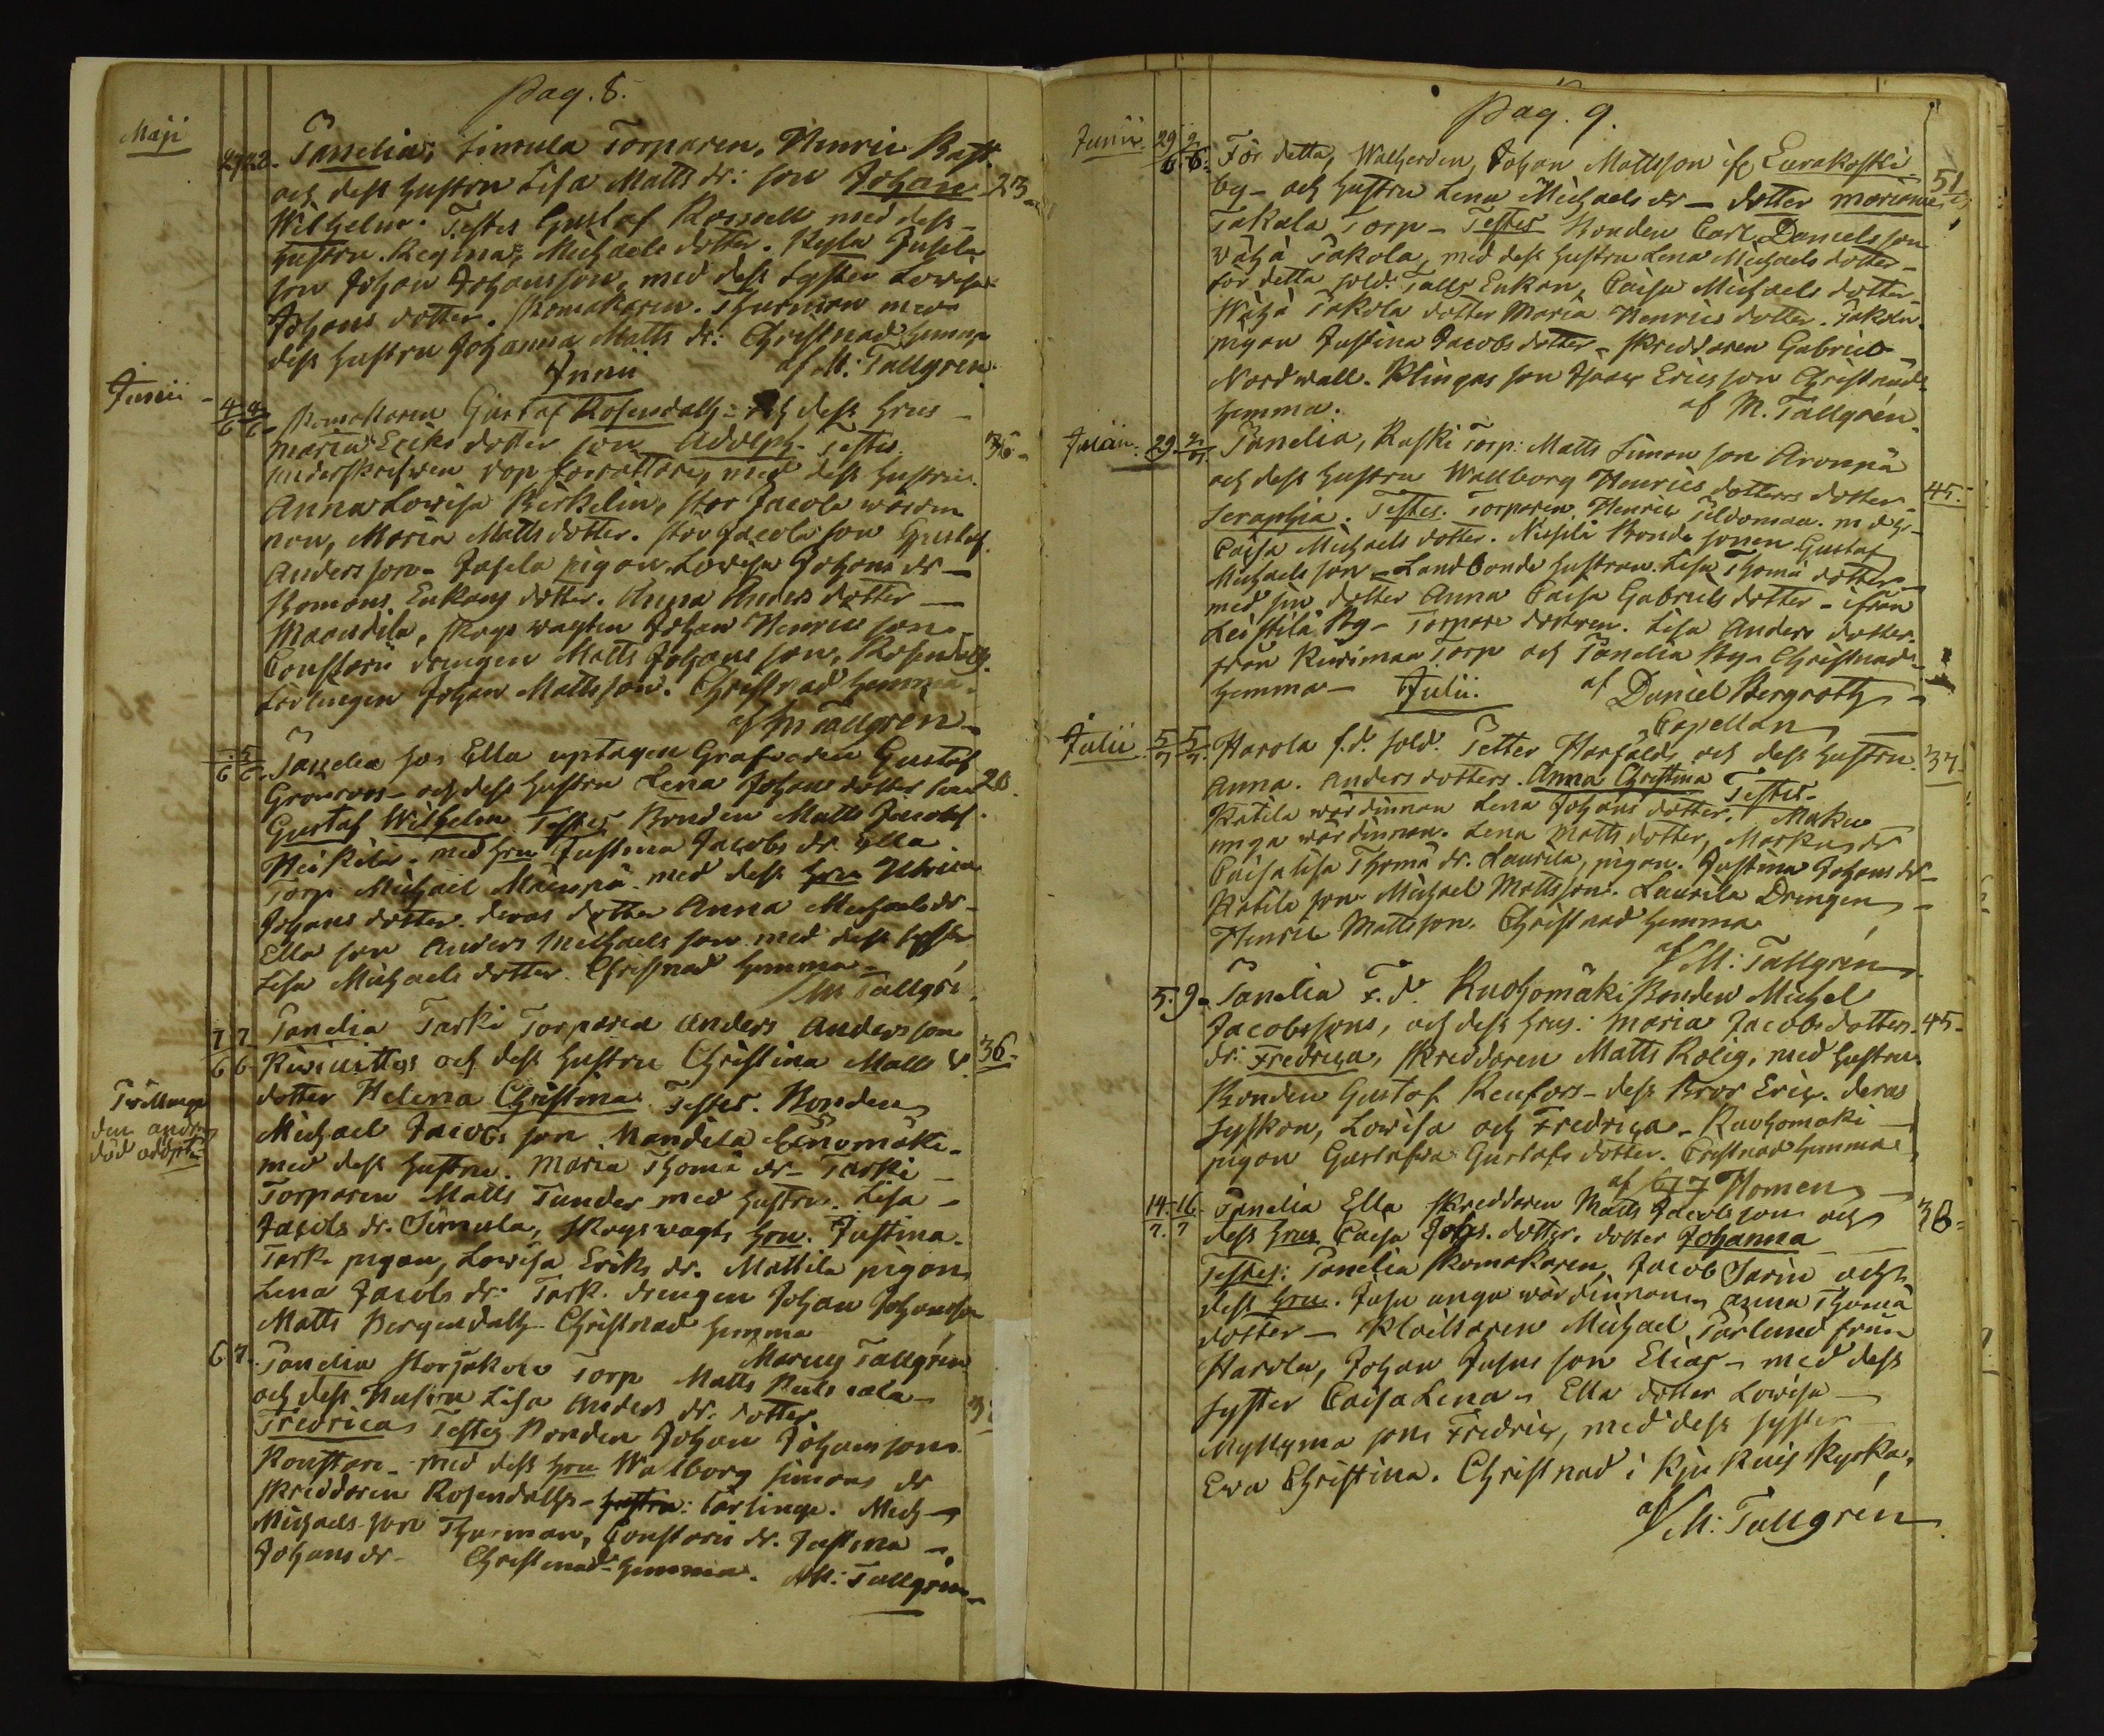 Pag. 8.
Maji
27 23. Panelia, Simula Torparen, Henric Raft
och dess hustru Lisa Matts dr: son Johan 23
Wilhelm. Testes Gustaf Rosnell med dess
hustru. Regina Michaels dotter. Kyla Jusila
son Johan Johansson, med dess syster Lowisa
Johans dotter. Skomakaren. Thurman med
dess hustru Johanna Matts dr: Christnad hemma
af M: Tallgren.
Junii
Junii
4/6 8/6 Skomakaren Gustaf Rosendall= och dess hrus
maria Eriks dotter son Adolph. Testes 36
underskrefwen dop förrättare, med dess hustru
Anna Lowisa Birkelin, stor Jacola wärdin
nan, Maria Matts dotter. stor Jacola son Gustaf
Anders son. Jusela pigan Lovisa Johans dr
Skomans Enkans dotter. Anna Anders dotter
Mandila, skogswagten Johan Henric son
Constarii drengen Matts Johans son, Rosendalls
Lärlingen Johan Matts son. Christnad hemma.
af M Tallgrén
5/6 5/6 Panelia hos Ella uptagen Grafwaren Gustaf
Grönroos och dess hustru Lena Johans dotter son 20.
Gustaf Wilhelm Testes Bonden Matts Jacobs
Heikilä. med hru Justina Jacobs dr. Ella
Torp. Michaël Mäenpä med dess hru Ulrica
Johans dotter. deras dotter Anna Michaels dr
Ella son Anders Michaels son med dess syster
Lisa Michaels dotter. Christnad hemma
/M Tallgrén
7/6 7/6 Panelia Tarki Torparen Anders Anders son
Kiwiniittus och dess hustru Christina Matts d. 36
dotter Helena Christina. Testes. Bonden
Twillinge
den andra
död odöpt
Michael Jacobs son Mandila
med dess hustru. Maria Thomä dr Tarki
Torparen Matts Tunder med hustru Lisa
Jacobs dr. Simula, skogswagts hru. Justina.
Tark. pigan, Lowisa Eriks dr. Mattila pigan
Lena Jacobs dr. Tark. drengen Johan Johansson
Matts Bergendalh. Christnad hemma
Marcus Tallgrén
6 7. Panelia storjakola Torp Matts
och dess Hustru Lisa Anders dr. dotter 3
Fredrica Testes Bonden Johan Johansson
Konstari med dess hru Walborg Simons dr
Skreddaren Rosendalhs Lärlinge. Mich
Michaels son Thurman, Constaris dr. Justina
Johans dr. Christnad hemma. M: Tallgrén
Pag. 9.
Junii 29/6 6. För detta, Walherden, Johan Mattsson if Eurakoski
by och hustru Lena Michaels dr dotter mariana 51
Takala Torp Testes Bonden Carl Danielsson
wähä Takola, med dess hustru Lena Michaels dotter
för detta sold. Talls Enkan, Caisa Michaels dotter
Wähä Takola dotter Maria Henrics dotter. Takola
pigan Justina Jacobs dotter Skreddaren Gabriel
Nordwall. Klingas son Isaac Ericsson Christnad
hemma. af M. Tallgrén.
Junii. 29 Panelia, Raski Torp: Matts Simon son Aronpä
och dess hustru Wallborg Henrics dotters dotter 45.
Seraphia. Testes. Torparen Henric Sildoman. m d h
Caisa Michaels dotter. Nissilä Bonde sonen Gustaf
Michaels son Landbonde hustrun Lisa Thomä dotter
med sin dotter Anna Caisa Gabriels dotter ifrån
Leistilä By Torpare dottren. Lisa Anders dotter
från Kurimaa Torp och Panelia By Christnad
hemma Julii. af Daniel Bergroth
Capellan
Julii 5/7 5/7 Harola f.d. sold. Petter Harfald, och dess hustru 37
Anna. Anders dotters. Anna Christina Testes
Katila wärdinnan Lena Johans dotter. Maku
unga wärdinnan. Lena Matts dotter, Markus dr
Caisa Lisa Thomä dr. Laurila, pigan. Justina Johans dr
Katila son Michael Mattsson. Laurila Drengen
Henric Mattsson. Christnad hemma
af M: Tallgrén
5. 9. Panelia F. d. Ruohomäki Bonden Michel
Jacobssons, och dess hrus: Maria Jacobs dotters 45
dr: Fredrica, Skreddaren Matts Rolig, med hustru
Bonden Gustaf Renfors dess Bror Eric. deras
syskon, Lowisa och Fredrica Ruohomäki
pigan Gustafwa Gustafs dotter. Cristnad hemma
af Homen
14/7. 16/7 Panelia Ella Skreddaren Matts Jacobsson och 38
dess hrus Caisa Johs. dotter. dotter Johanna
Testes: Panelia Skomakaren, Jacob Sarin och
dess hru. Jusu unga wärdinnan, Anna Thomä
dotter Klockaren Michael Pärlund från
Harola, Johan Jusus son Elias med dess
syster Caisa Lena Ella dotter Lowisa
Myllymä son Fredric, med dess syster
Ewa Christina. Christnad i Kjukais Kyrka,
af M: Tallgrén